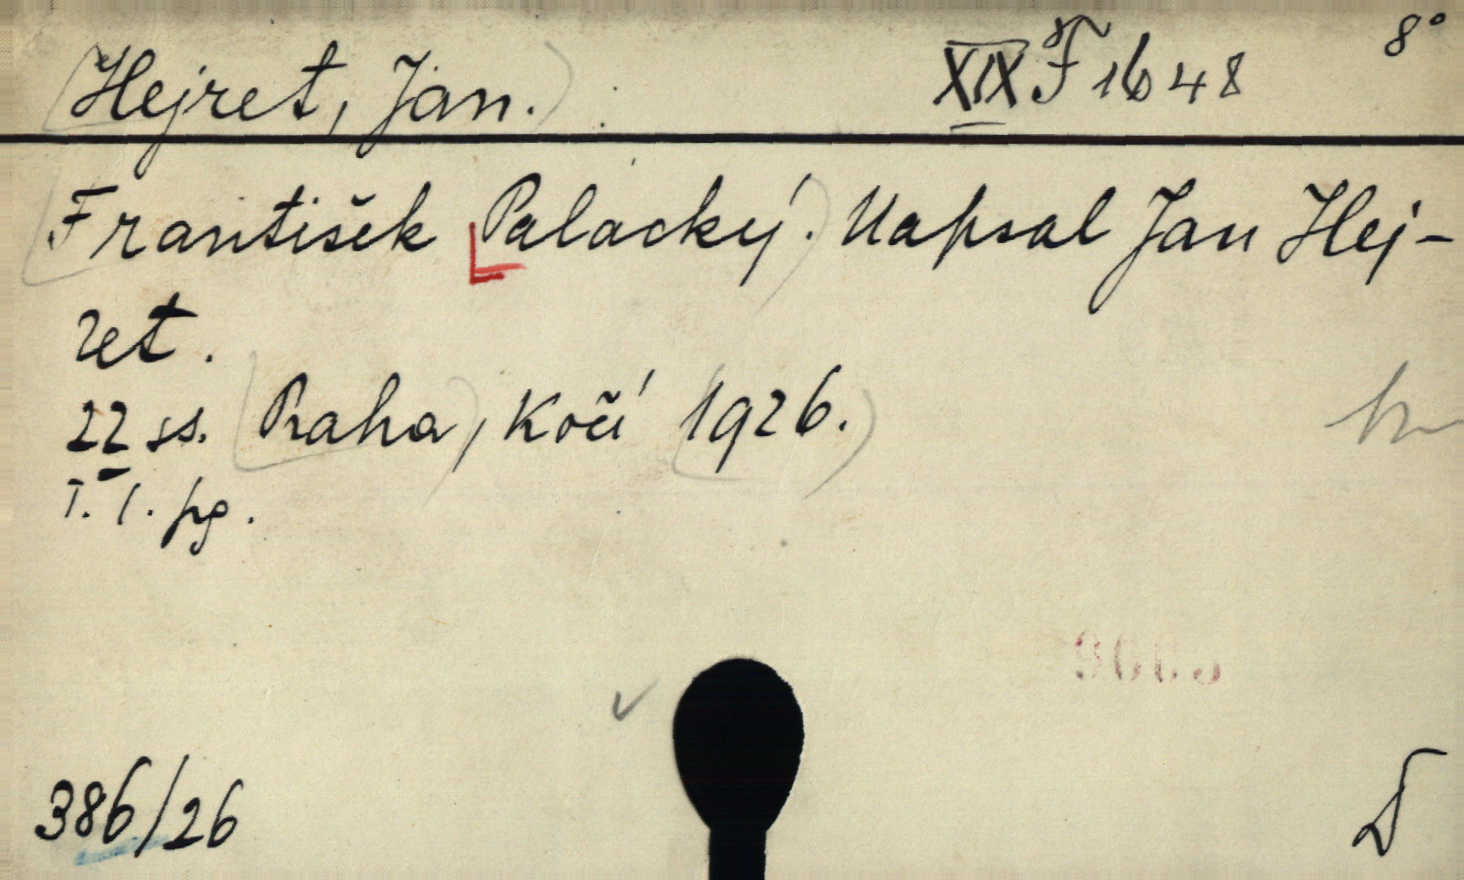 Hejret, Jan. XIX F 1648 8°
František Palacký. Napsal Jan Hej-
ret.
22 ss. Praha, Kočí 1926.
T. I. pg.
386/26 D